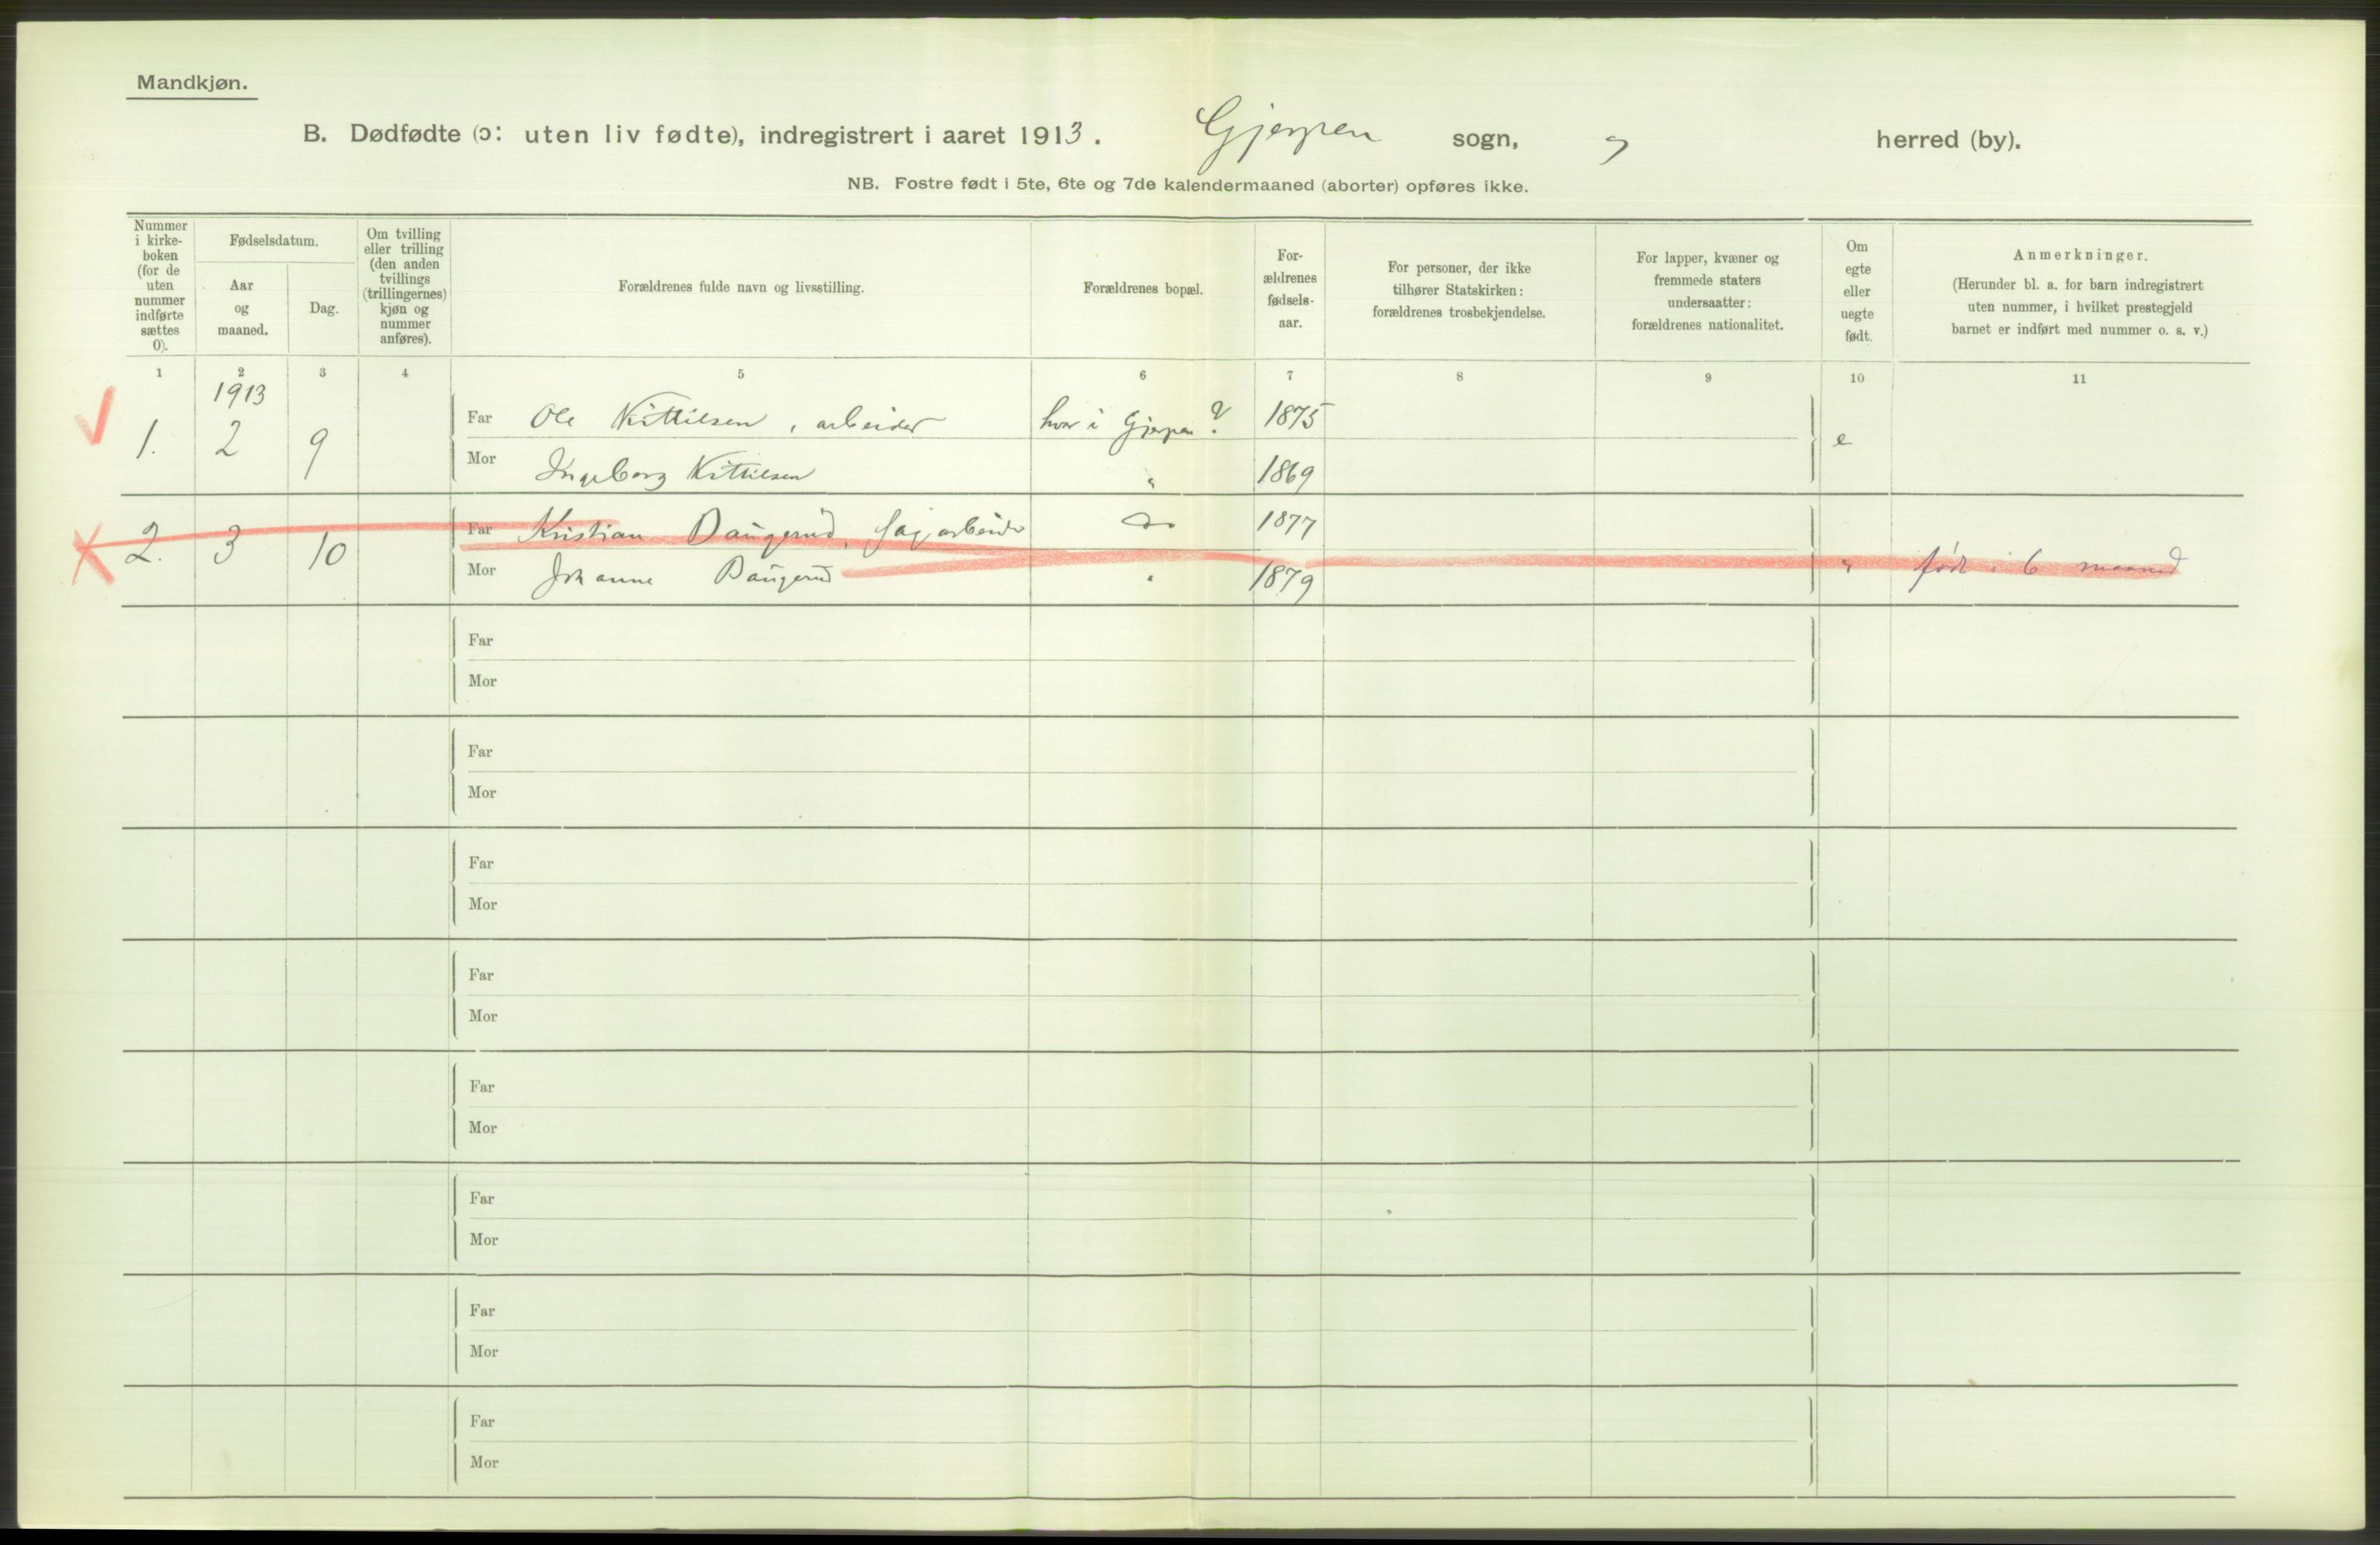 Mandkjøn.
B. Dødfødte (ɔ: uten liv fødte), indregistrert i aaret 1913. Gjerpen sogn, " herred (by).
NB. Fostre født i 5te, 6te og 7de kalendermaaned (aborter) opføres ikke.
Nummer i kirke-boken (for de uten nummer indførte sættes 0).
Fødselsdatum.
Aar og maaned.
Dag.
Om tvilling eller trilling (den anden tvillings (trillingernes) kjøn og nummer anføres).
Forældrenes fulde navn og livsstilling.
Forældrenes bopæl.
For-ældrenes fødsels-aar.
For personer, der ikke tilhører Statskirken: forældrenes trosbekjendelse.
For lapper, kvæner og fremmede staters undersaatter: forældrenes nationalitet.
Om egte eller uegte født.
Anmerkninger.
(Herunder bl. a. for barn indregistrert uten nummer, i hvilket prestegjeld barnet er indført med nummer o. s. v.)
1 2 3 4 5 6 7 8 9 10 11
1913
1. 2 9 Far Ole Kittilsen, arbeider hvor i Gjerpen? 1875 e
Mor Ingeborg Kittilsen " 1869
2. 3 10 Far Kristian Baugerud, sagarbeider do 1877
Mor Johanne Baugerud " 1879 " født i 6 maaned
Far
Mor
Far
Mor
Far
Mor
Far
Mor
Far
Mor
Far
Mor
Far
Mor
Far
Mor